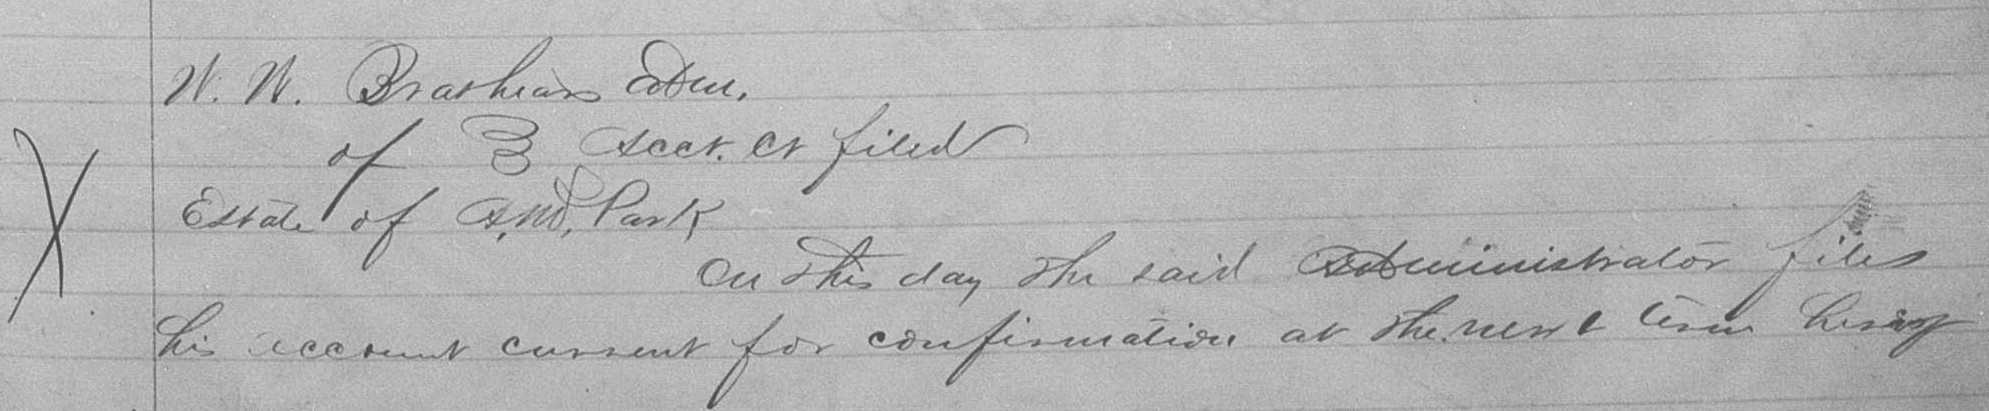 W. W. Brashears Adm.
of } Acct. Ct filed
Estate of A. M. Park
On this day the said Administrator files
his account current for confirmation at the next term